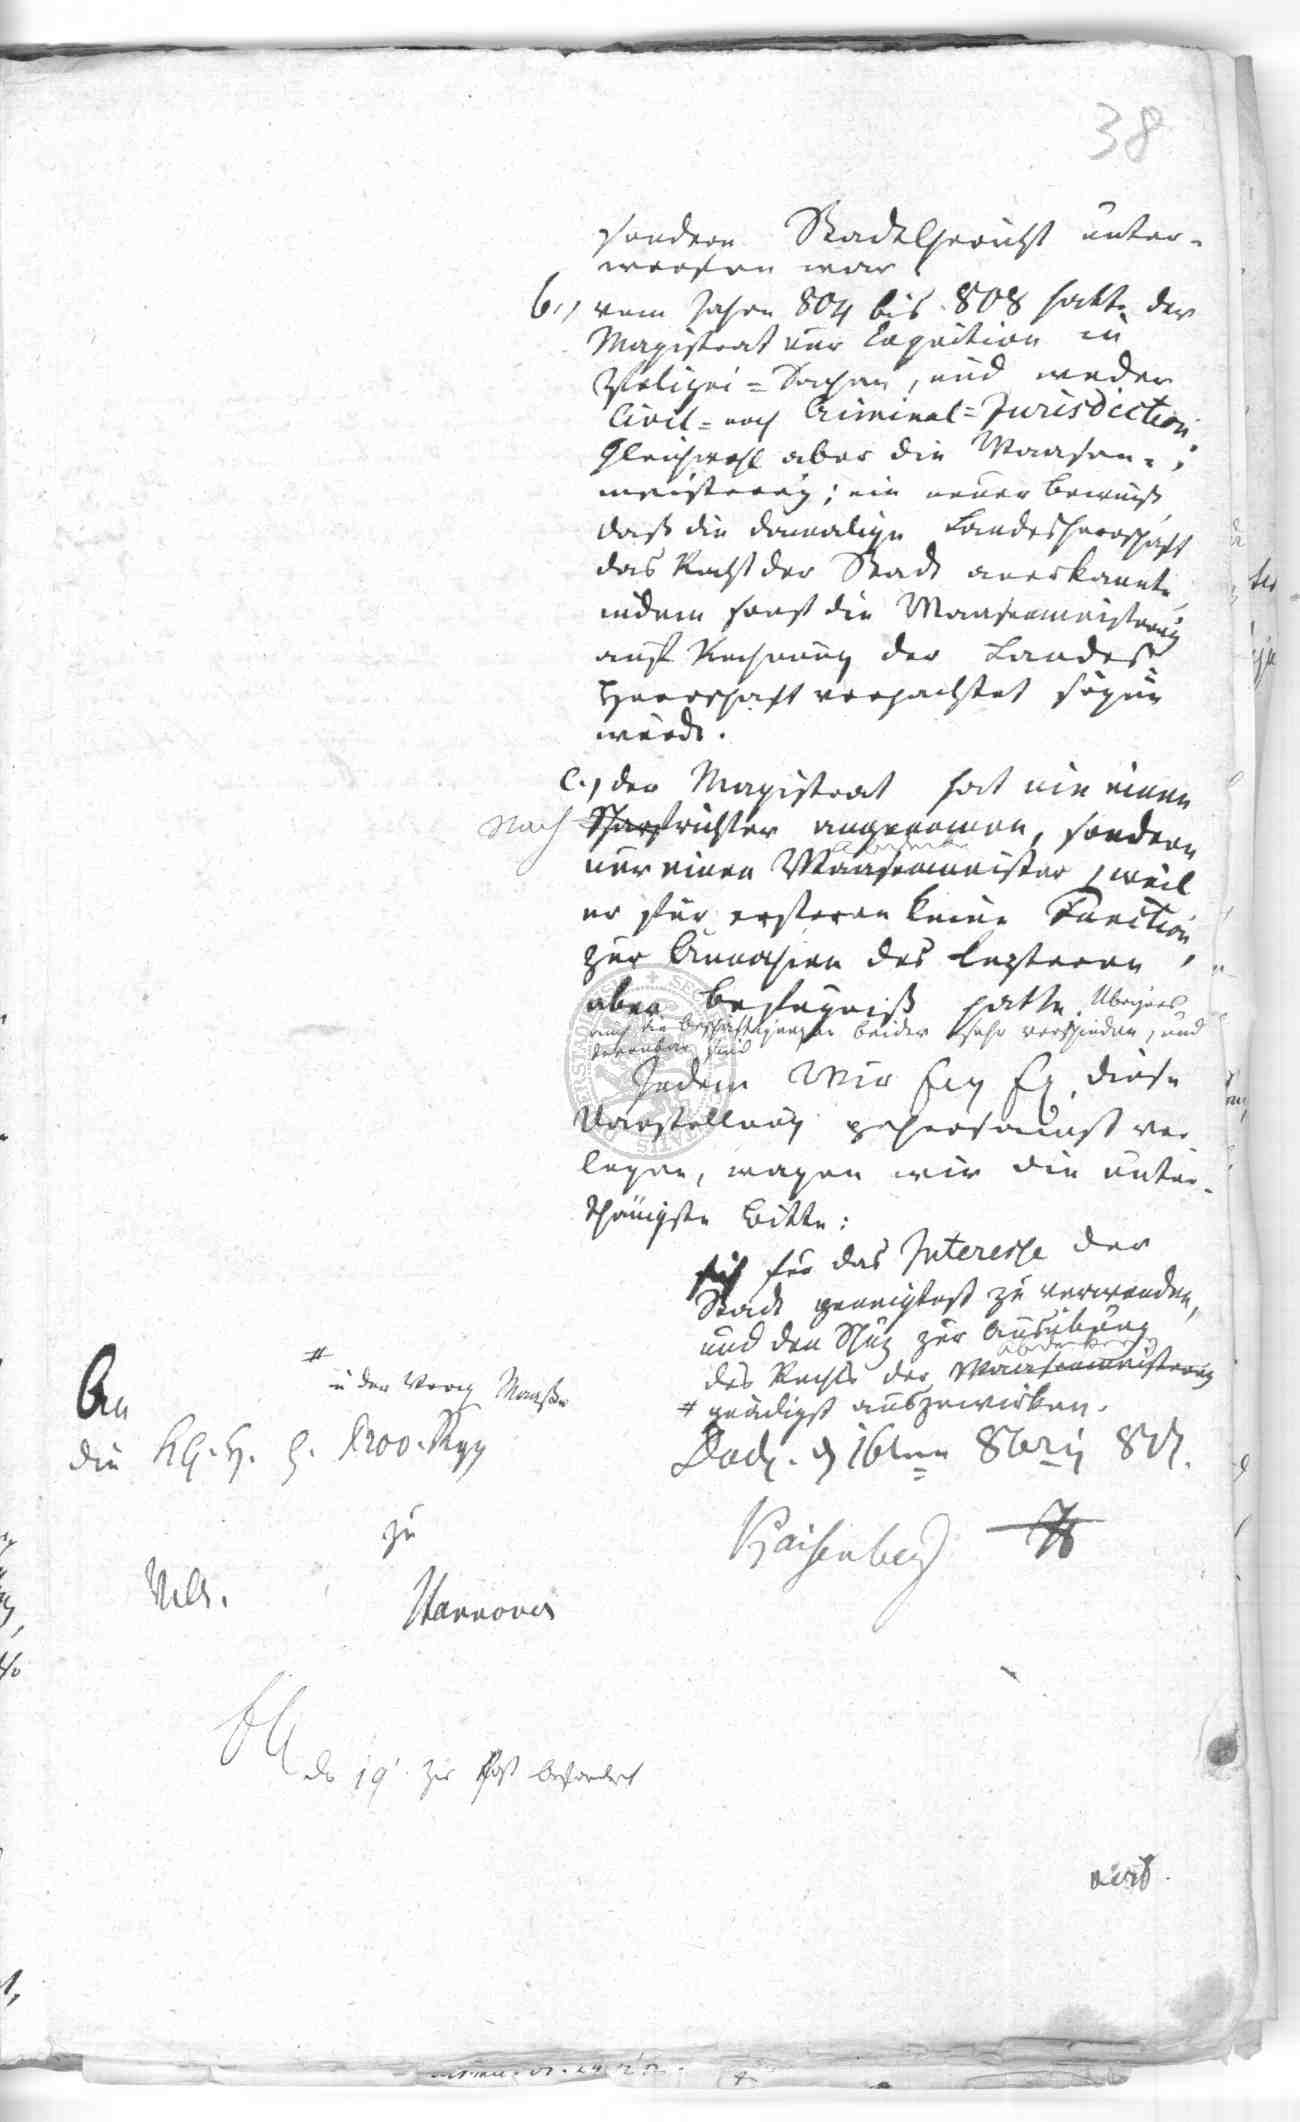 38
sondern Stadtgericht unter-
worfen war.
b., vom Jahre 804 bis 808 hatte der
Magistrat nur Cognition in
Polizei=Sachen, und weder
Civil= noch Criminal=Jurisdiction,
gleichwohl aber die Waasen-
meisterey; ein neuer Beweiß,
daß die damalige Landesherrschaft
das Recht der Stadt anerkannte,
indem sonst die Waasenmeisterey
auf Rechnung der Landes
Herrschaft verpachtet seyn
würde.
c., der Magistrat hat nie einen
Nach Scharfrichter angenomen, sondern
nur einen Waasenmeister, weil
er für ersteren keine Function,
zur Annahme des lezteren
aber Befugniß hatte. Übrigens
auch die Beschäftigungen beider sehr verschieden, und
sind
Indem Wir diese
Vorstellung gehorsamst vor-
legen, wagen wir die unter-
thänigste Bitte:
sich für das Interesse der
Stadt geneigtest zu verwenden,
und den Schuz zur Ausübung
des Rechts der Waasenmeisterey
# gnädigst auszuwirken.
16ten 8br 817.
#
in der Maaße
An
die Prov.
zu
Hannover
19 zur Post befördert